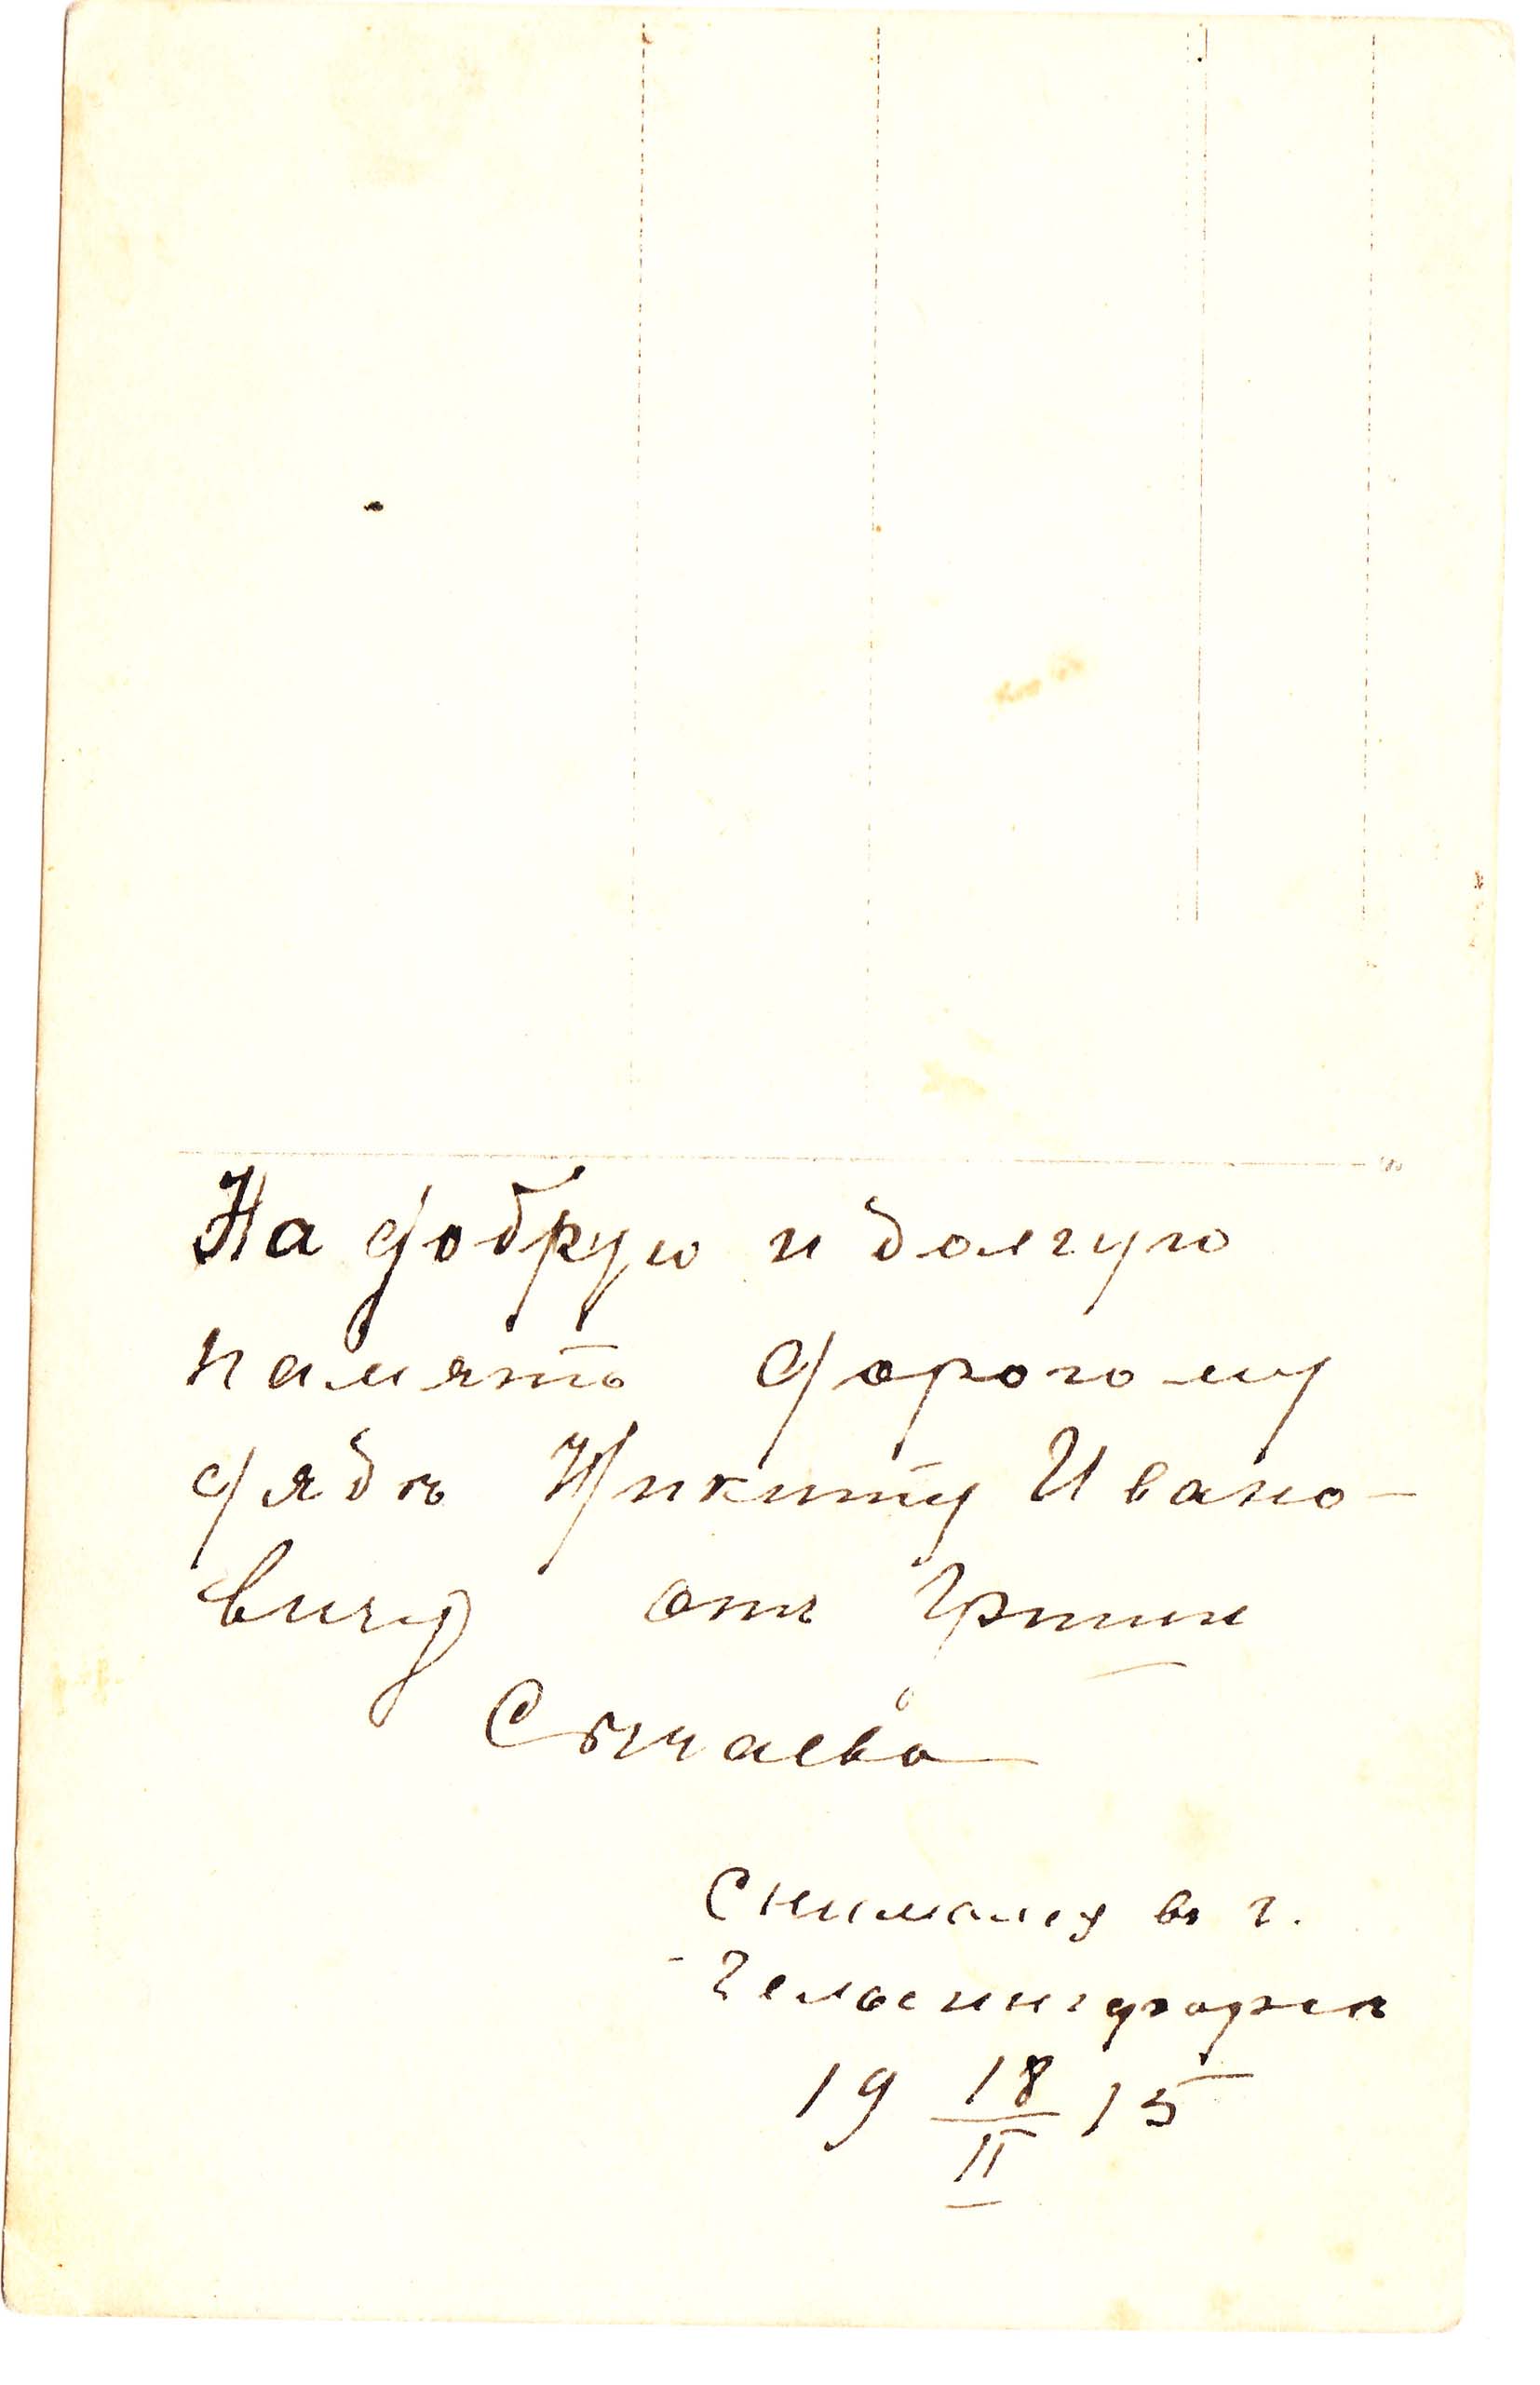 На добрую и долгую
память дорогому
дядѣ Никиту Ивано-
вичу отъ Гриши
Сычаева
Снимался въ г.
Гельсингфорсѣ
19 18/II 15